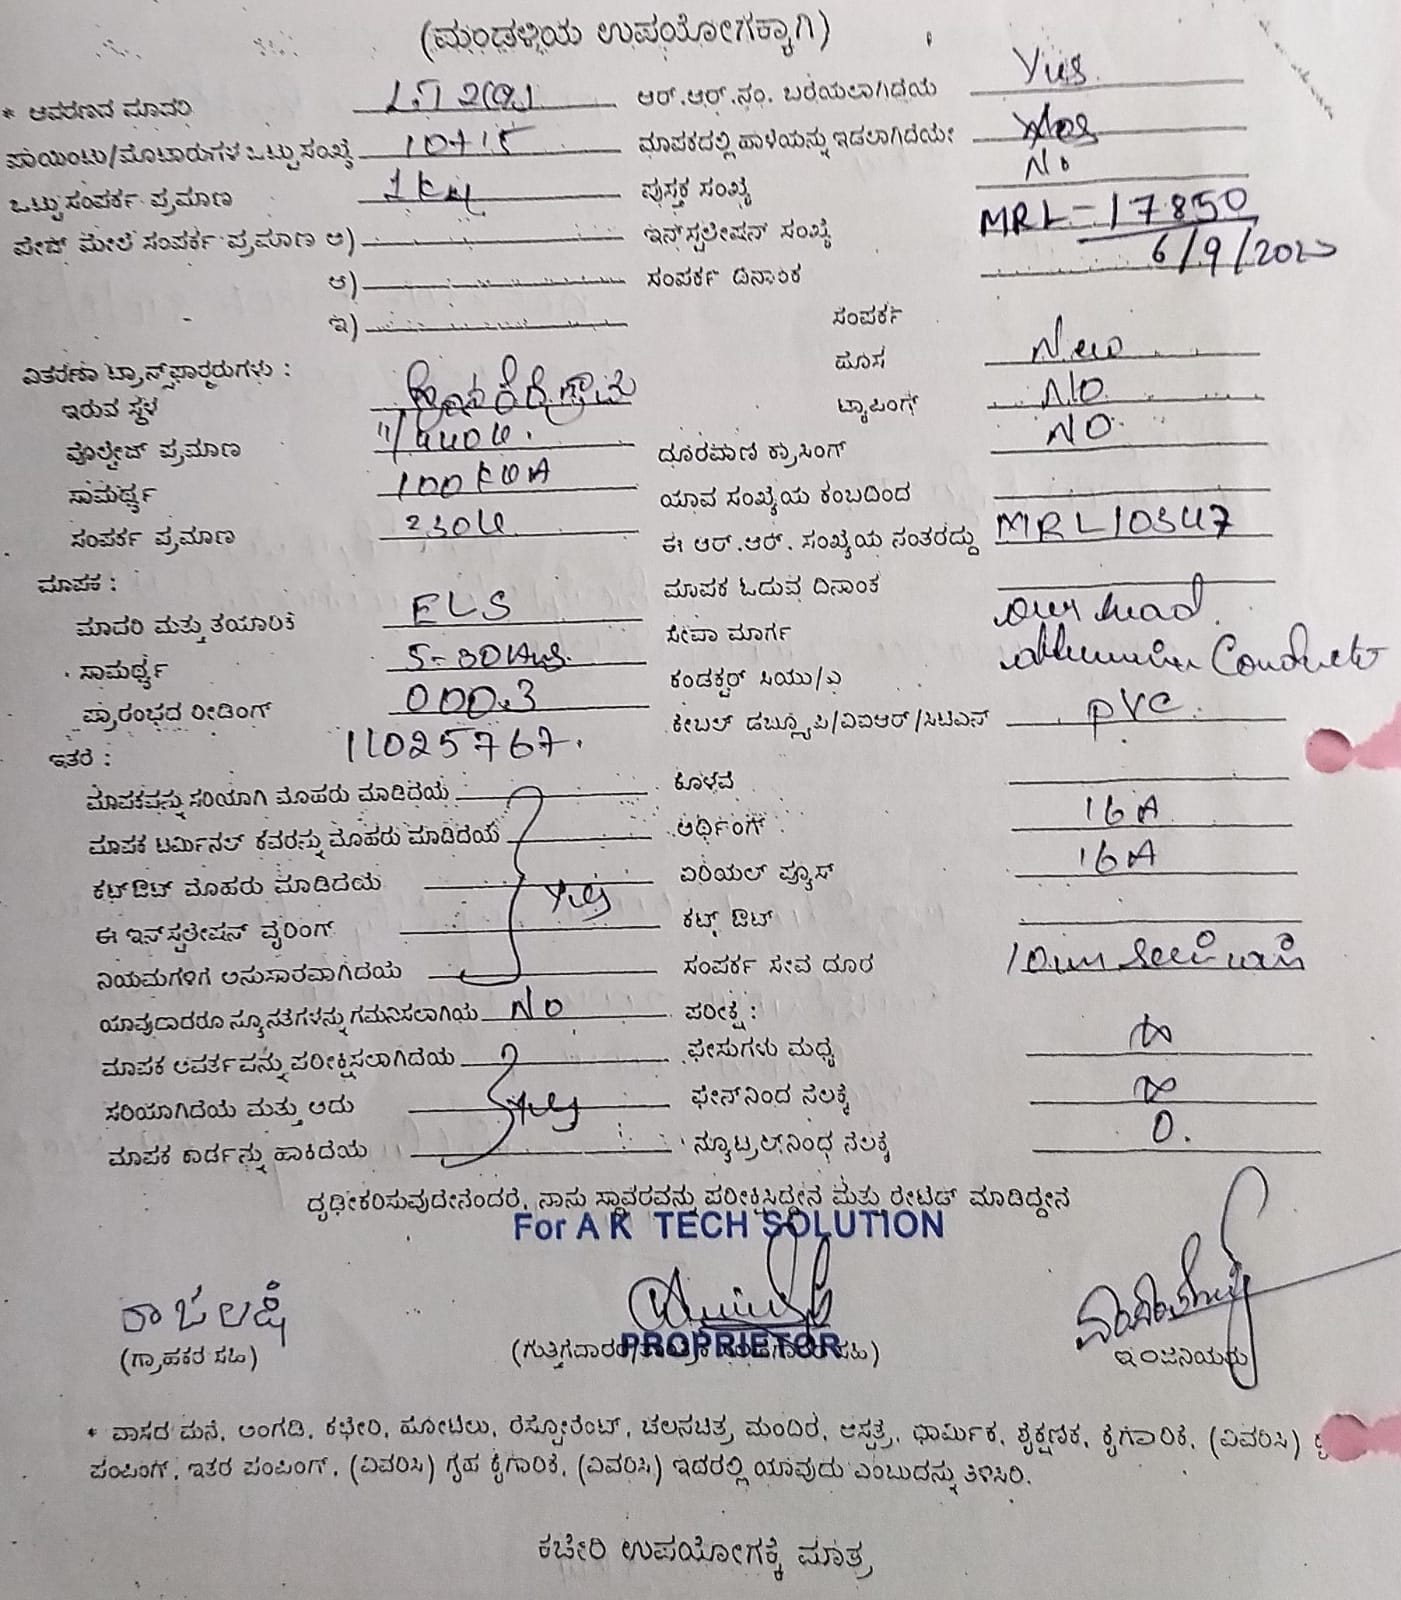 (ಮಂಡಳಿಯ ಉಪಯೋಗಕ್ಕಾಗಿ)
* ಆವರಣದ ಮಾದರಿ LT2(a) ಆರ್.ಆರ್.ನಂ. ಬರೆಯಲಾಗಿದೆಯೆ Yes
ಪಾಯಿಂಟು/ಮೋಟಾರುಗಳ ಒಟ್ಟು ಸಂಖ್ಯೆ 10+15 ಮಾಪಕದಲ್ಲಿ ಹಾಳೆಯನ್ನು ಇಡಲಾಗಿದೆಯೇ
ಒಟ್ಟು ಸಂಪರ್ಕ ಪ್ರಮಾಣ 1 KW ಪುಸ್ತಕ ಸಂಖ್ಯೆ No
ಪೇಜ್ ಮೇಲೆ ಸಂಪರ್ಕ ಪ್ರಮಾಣ ಅ) ಇನ್‌ಸ್ಟಲೇಷನ್ ಸಂಖ್ಯೆ MRL-17850
ಆ) ಸಂಪರ್ಕ ದಿನಾಂಕ 6/9/20
ಇ) ಸಂಪರ್ಕ
ವಿತರಣಾ ಟ್ರಾನ್ಸ್‌ಫಾರ್ಮರುಗಳು : ಹೊಸ New
ಇರುವ ಸ್ಥಳ ಟ್ಯಾಪಿಂಗ್ NO
ವೋಲ್ಟೇಜ್ ಪ್ರಮಾಣ 11/440V. ದೂರವಾಣಿ ಕ್ರಾಸಿಂಗ್ NO
ಸಾಮರ್ಥ್ಯ 100 KVA ಯಾವ ಸಂಖ್ಯೆಯ ಕಂಬದಿಂದ
ಸಂಪರ್ಕ ಪ್ರಮಾಣ 230V ಈ ಆರ್.ಆರ್. ಸಂಖ್ಯೆಯ ನಂತರದ್ದು MRL10347
ಮಾಪಕ : ಮಾಪಕ ಓದುವ ದಿನಾಂಕ
ಮಾದರಿ ಮತ್ತು ತಯಾರಿಕೆ ELS ಸೇವಾ ಮಾರ್ಗ over head
ಸಾಮರ್ಥ್ಯ 5-30 ಕಂಡಕ್ಟರ್ ಸಿಯು/ಎ Conductor
ಪ್ರಾರಂಭದ ರೀಡಿಂಗ್ 000.3 ಕೇಬಲ್ ಡಬ್ಲ್ಯೂಪಿ/ವಿಐಆರ್/ಸಿಟಿಎಸ್ PVC
ಇತರೆ : 11025767.
ಮಾಪಕವನ್ನು ಸರಿಯಾಗಿ ಮೊಹರು ಮಾಡಿದೆಯೆ ಕೊಳವೆ
ಮಾಪಕ ಟರ್ಮಿನಲ್ ಕವರನ್ನು ಮೊಹರು ಮಾಡಿದೆಯೆ ಅರ್ಥಿಂಗ್ 16A
ಕಟ್‌ಔಟ್ ಮೊಹರು ಮಾಡಿದೆಯೆ Yes ಏರಿಯಲ್ ಫ್ಯೂಸ್ 16A
ಈ ಇನ್‌ಸ್ಟಲೇಷನ್ ವೈರಿಂಗ್ ಕಟ್ಟ್ ಔಟ್
ನಿಯಮಗಳಿಗೆ ಅನುಸಾರವಾಗಿದೆಯೆ ಸಂಪರ್ಕ ಸೇವೆ ದೂರ
ಯಾವುದಾದರೂ ನ್ಯೂನತೆಗಳನ್ನು ಗಮನಿಸಲಾಗಿಯೆ No ಪರೀಕ್ಷೆ :
ಮಾಪಕ ಆವರ್ತವನ್ನು ಪರೀಕ್ಷಿಸಲಾಗಿದೆಯೆ ಫೇಸುಗಳು ಮಧ್ಯೆ ∞
ಸರಿಯಾಗಿದೆಯೆ ಮತ್ತು ಅದು Yes ಫೇಸ್‌ನಿಂದ ನೆಲಕ್ಕೆ ∞
ಮಾಪಕ ಕಾರ್ಡನ್ನು ಹಾಕಿದೆಯೆ ನ್ಯೂಟ್ರಲ್‌ನಿಂಧ ನೆಲಕ್ಕೆ 0.
ದೃಢೀಕರಿಸುವುದೇನೆಂದರೆ, ನಾನು ಸ್ಥಾವರವನ್ನು ಪರೀಕ್ಷಿಸಿದ್ದೇನೆ ಮತ್ತು ರೇಟೆಡ್ ಮಾಡಿದ್ದೇನೆ
For A K TECH SOLUTION
ರಾಜಲಕ್ಷಿ
PROPRIETOR
(ಗ್ರಾಹಕರ ಸಹಿ) ಇಂಜಿನಿಯರು
* ವಾಸದ ಮನೆ, ಅಂಗಡಿ, ಕಛೇರಿ, ಹೋಟೆಲು, ರೆಸ್ಟೋರೆಂಟ್, ಚಲನಚಿತ್ರ ಮಂದಿರ, ಆಸ್ಪತ್ರೆ, ಧಾರ್ಮಿಕ, ಶೈಕ್ಷಣಿಕ, ಕೈಗಾರಿಕೆ, (ವಿವರಿಸಿ)
ಪಂಪಿಂಗ್, ಇತರ ಪಂಪಿಂಗ್, (ವಿವರಿಸಿ) ಗೃಹ ಕೈಗಾರಿಕೆ, (ವಿವರಿಸಿ) ಇದರಲ್ಲಿ ಯಾವುದು ಎಂಬುದನ್ನು ತಿಳಿಸಿರಿ.
ಕಚೇರಿ ಉಪಯೋಗಕ್ಕೆ ಮಾತ್ರ